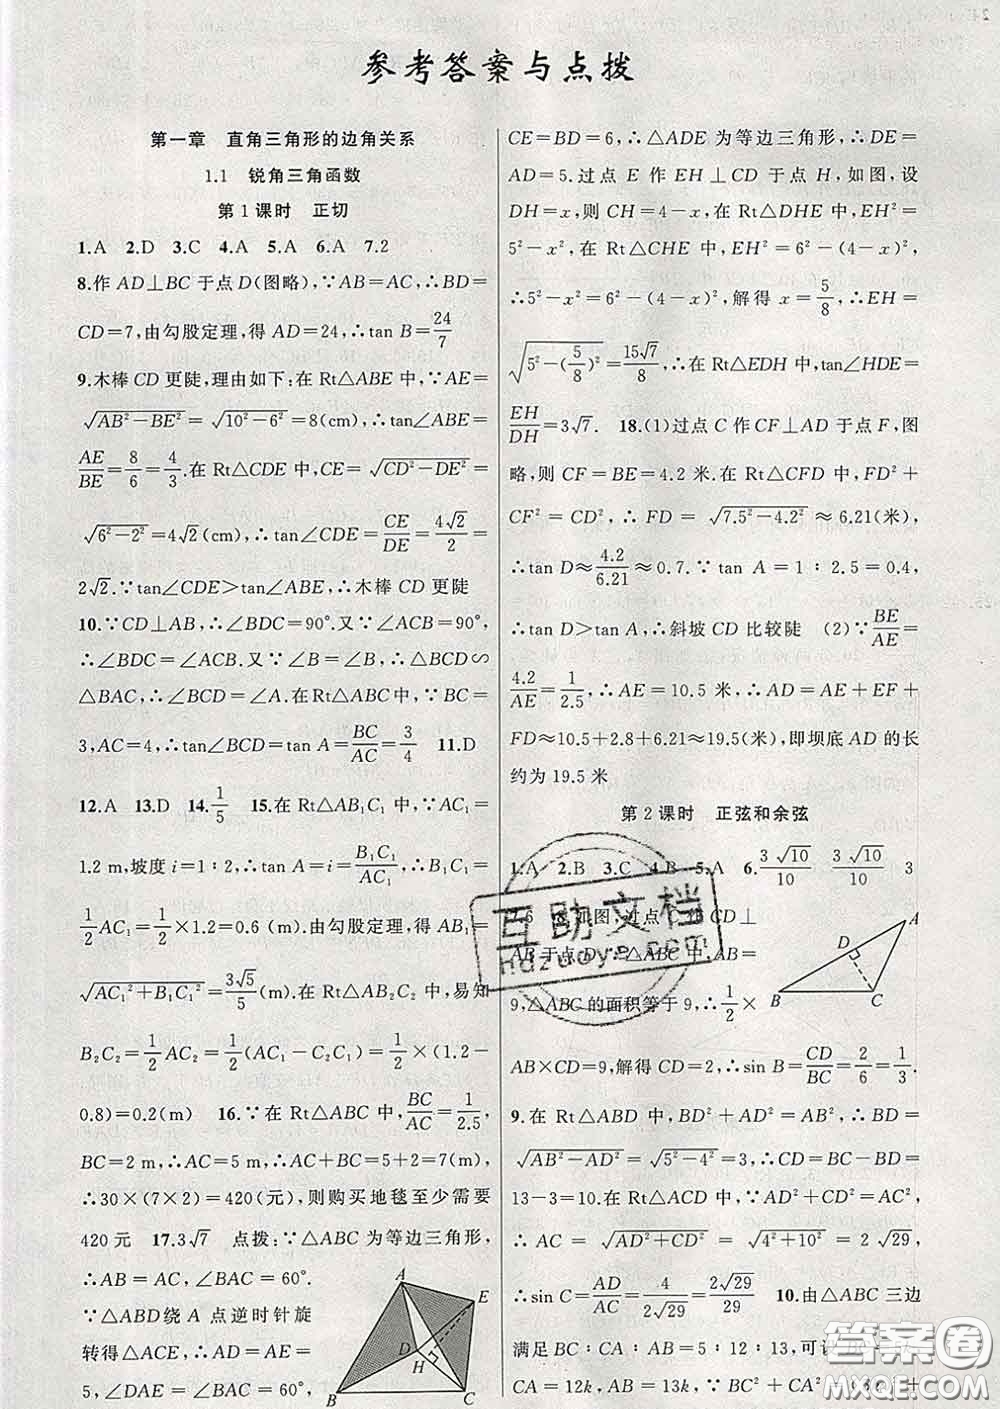 参考答案与点拨
第一章 直角三角形的边角关系
1.1 锐角三角函数
第1课时 正切
1.A 2.D 3.C 4.A 5.A 6.A 7.2
8.作 AD⊥BC 于点 D(图略),∵AB=AC,∴BD=
CD=7,由勾股定理,得 AD=24,∴tan B=24/7
9.木棒 CD 更陡,理由如下:在 Rt△ABE 中,∵AE=
√(AB²-BE²)=√(10²-6²)=8(cm),∴tan∠ABE=
AE/BE=8/6=4/3.在 Rt△CDE 中,CE=√(CD²-DE²)=
√(6²-2²)=4√2(cm),∴tan∠CDE=CE/DE=4√2/2=
2√2.∵tan∠CDE>tan∠ABE,∴木棒 CD 更陡
10.∵CD⊥AB,∴∠BDC=90°.又∵∠ACB=90°,
∴∠BDC=∠ACB.又∵∠B=∠B,∴△BCD∽
△BAC,∴∠BCD=∠A.在 Rt△ABC 中,∵BC=
3,AC=4,∴tan∠BCD=tan A=BC/AC=3/4 11.D
12.A 13.D 14.1/5 15.在 Rt△AB₁C₁ 中,∵AC₁=
1.2 m,坡度 i=1:2,∴tan A=i=B₁C₁/AC₁,∴B₁C₁=
1/2AC₁=1/2×1.2=0.6 (m).由勾股定理,得 AB₁=
√(AC₁²+B₁C₁²)=3√5/5(m).在 Rt△AB₂C₂ 中,易知
B₂C₂=1/2AC₂=1/2(AC₁-C₂C₁)=1/2×(1.2-
0.8)=0.2(m) 16.∵在 Rt△ABC 中,BC/AC=1/2.5,
BC=2 m,∴AC=5 m,∴AC+BC=5+2=7(m),
∴30×(7×2)=420(元),则购买地毯至少需要
420元 17.3√7 点拨:∵△ABC 为等边三角形,
∴AB=AC,∠BAC=60°.
∵△ABD绕 A 点逆时针旋
转得△ACE,∴AD=AE=
5,∠DAE=∠BAC=60°,
A
E
D
H
B
C
CE=BD=6,∴△ADE为等边三角形,∴DE=
AD=5.过点 E 作 EH⊥CD 于点 H,如图,设
DH=x,则 CH=4-x,在 Rt△DHE 中,EH²=
5²-x²,在 Rt△CHE 中,EH²=6²-(4-x)²,
∴5²-x²=6²-(4-x)²,解得 x=5/8,∴EH=
√(5²-(5/8)²)=15√7/8,∴在 Rt△EDH 中,tan∠HDE=
EH/DH=3√7. 18.(1)过点 C 作 CF⊥AD 于点 F,图
略,则 CF=BE=4.2 米.在 Rt△CFD 中,FD²+
CF²=CD²,∴FD=√(7.5²-4.2²)≈6.21(米),
∴tan D≈4.2/6.21≈0.7.∵tan A=1:2.5=0.4,
∴tan D>tan A,∴斜坡 CD 比较陡 (2)∵BE/AE=
4.2/AE=1/2.5,∴AE=10.5 米,∴AD=AE+EF+
FD≈10.5+2.8+6.21≈19.5(米),即坝底 AD 的长
约为 19.5 米
第2课时 正弦和余弦
1.A 2.B 3.C 4.B 5.A 6.3√10/10 3√10/10 3
7.6 8.如图,过点 作 CD⊥
AB 于点 D,
9,△ABC 的面积等于 9,∴1/2×
AB×CD=9,解得 CD=2,∴sin B=CD/BC=2/6=1/3.
A
D
B
C
9.在 Rt△ABD 中,BD²+AD²=AB²,∴BD=
√(AB²-AD²)=√(5²-4²)=3,∴CD=BC-BD=
13-3=10.在 Rt△ACD 中,∵AD²+CD²=AC²,
∴AC=√(AD²+CD²)=√(4²+10²)=2√29,
∴sin C=AD/AC=4/(2√29)=2√29/29 10.由△ABC 三边
满足 BC:CA:AB=5:12:13,可设
CA=12k,AB=13k,∵BC²+CA²
互助文档
hdzuoye.com
答案圈
MXQE.COM